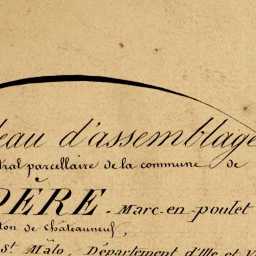 eau d'assemblage
tral parcellaire de la commune de
DÈRE. Marc-en-poulet
ton de Châteauneuf,
St Mâlo, Département d'Ille et V